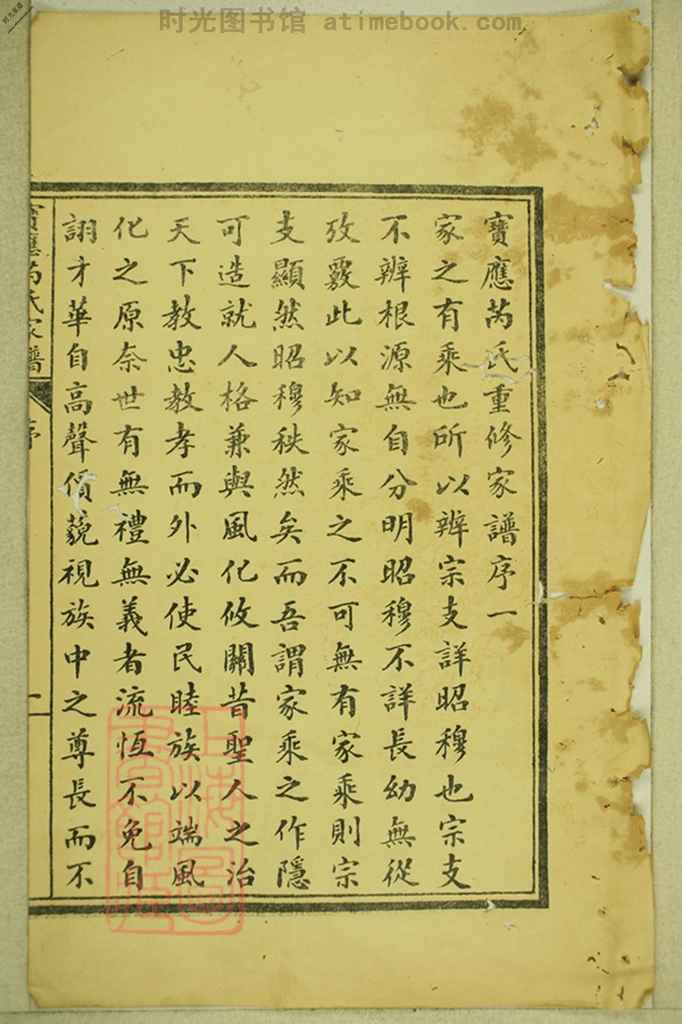 时光图书馆 atimebook.com
寶應芮氏重修家譜序一
家之有乘也所以辨宗支詳昭穆也宗支
不辨根源無自分明昭穆不詳長幼無從
攷覈此以知家乘之不可無有家乘則宗
支顯然昭穆秩然矣而吾謂家乘之作隱
可造就人格兼與風化攸關昔聖人之治
天下教忠教孝而外必使民睦族以端風
化之原奈世有無禮無義者流恆不免自
詡才華自高聲價藐視族中之尊長而不
寶應芮氏家譜
序
一